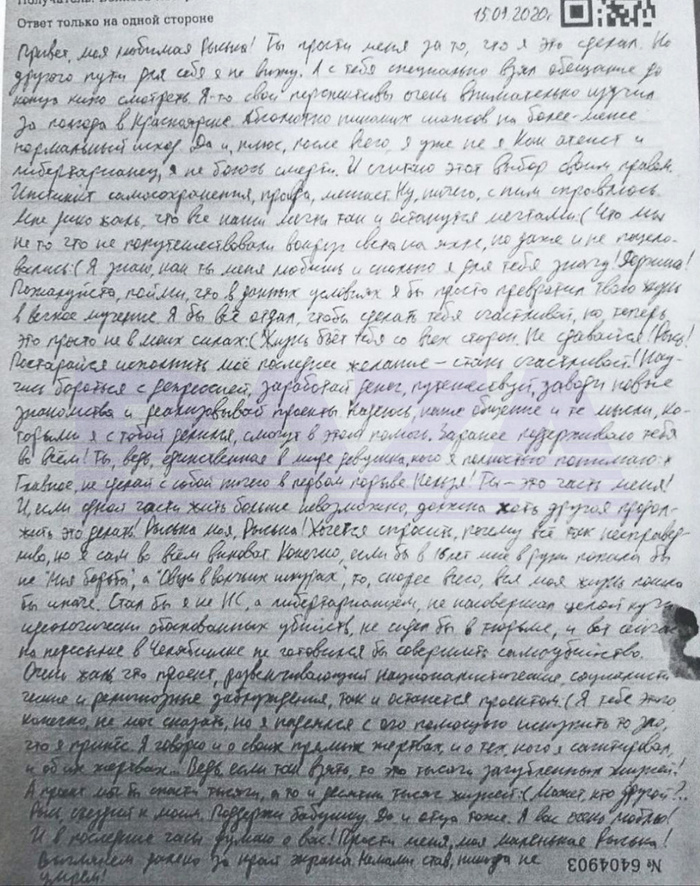 Ответ только на одной стороне
15.09.2020г
Привет, моя любимая Рыська! Ты прости меня за то, что я это сделал. Но
другого пути для себя я не вижу. А с тебя специально взял обещание до
конца кино смотреть. Я-то свои перспективы очень внимательно изучил
за полгода в Красноярске. Абсолютно никаких шансов на более-менее
нормальный исход. Да и, плюс, после всего, я уже не я. Как атеист и
либертарианец, я не боюсь смерти. И считаю этот выбор своим правом.
Инстинкт самосохранения, правда, мешает. Ну, ничего, с ним справлюсь.
Мне жаль, что все наши мечты так и останутся мечтами:( Что мы
не то что не попутешествовали вокруг света на яхте, но даже и не поцело-
вались:( Я знаю, как ты меня любишь и сколько я для тебя значу! Держись!
Пожалуйста, пойми, что в данных условиях я бы просто превратил твою жизнь
в вечное мучение. Я бы всё отдал, чтобы сделать тебя счастливой, но, теперь,
это просто не в моих силах:( Жизнь бьёт тебя со всех сторон. Не сдавайся! Рысь!
Постарайся исполнить моё последнее желание – стань счастливой! Нау-
чись бороться с депрессией, заработай денег, путешествуй, заводи новые
знакомства и реализовывай проекты. Надеюсь, наше общение и те мысли, ко-
торыми я с тобой делился, смогут в этом помочь. Заранее поддерживаю тебя
во всём! Ты, ведь, единственная в мире девушка, кого я полностью понимаю:*
Главное, не сделай с собой ничего в первом порыве. Нельзя! Ты – это часть меня!
И если одной части жить больше невозможно, должна хоть другая продол-
жить это делать! Рыська моя, Рыська! Хочется спросить, почему всё так несправед-
ливо, но я сам во всём виноват. Конечно, если бы в 16 лет мне в руки попала бы
не "Моя борьба", а "Овцы в волчьих шкурах", то, скорее всего, вся моя жизнь пошла
бы иначе. Стал бы я не НС, а либертарианцем, не насовершал целой кучи
идеологически обоснованных убийств, не сидел бы в тюрьме, и вот сейчас
на пересылке в Челябинске не готовился бы совершить самоубийство.
Очень жаль что проект, развенчивающий националистические, социалисти-
ческие и религиозные заблуждения, так и останется проектом:( Я тебе этого,
конечно, не мог сказать, но я надеялся с его помощью искупить то зло,
что я принёс. Я говорю и о своих прямых жертвах, и о тех кого я сагитировал,
и об их жертвах... Ведь, если так взять, то это тысячи загубленных жизней!
А проект мог бы спасти тысячи, а то и десятки тысяч жизней:( Может, кто другой?..
Рысь, съезди к моим. Поддержи бабушку. Да и отца тоже. Я вас очень люблю!
И в последние часы думаю о вас! Прости меня, моя маленькая Рыська!
Выглянем далеко за край экрана. Нами став, никогда не
умрём!
№ 6404903